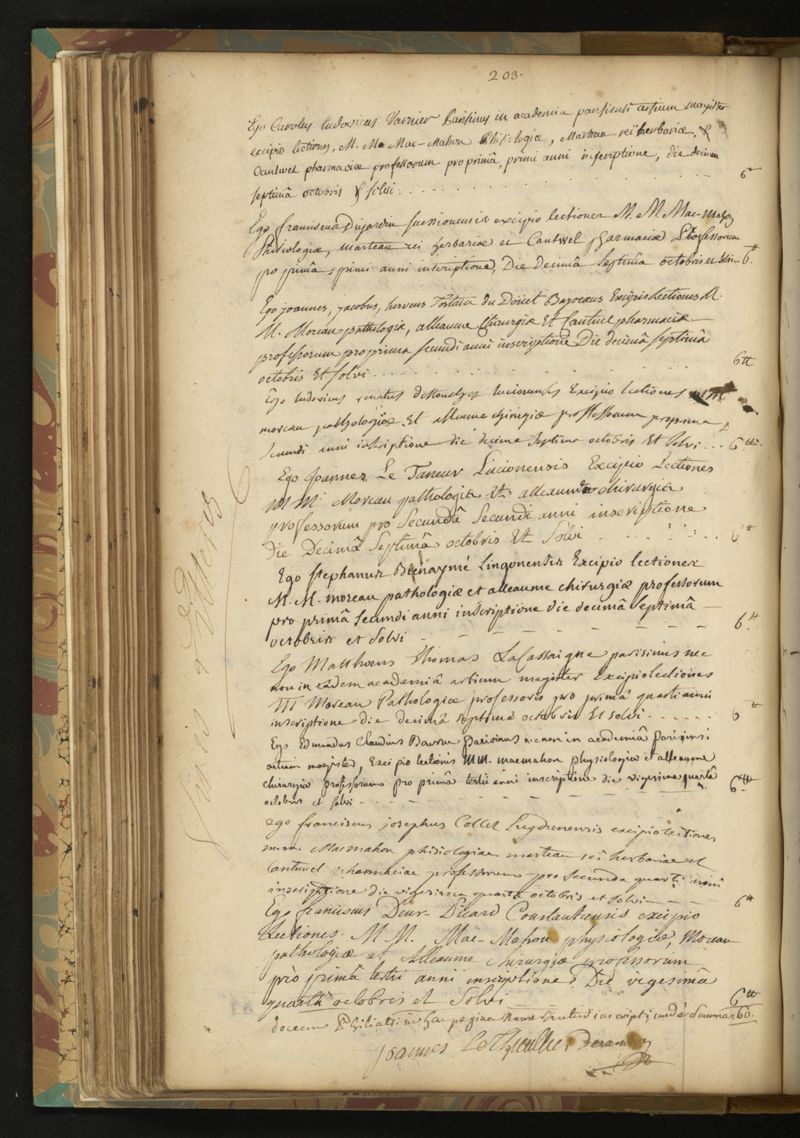 203.
Ego Carolus Ludovicus Varnier Parisinus in academia parisiensi artium magister
excipio lectiones, M. M. Mac-Mahon Phisiologiæ, Marteau rei herbariæ, &
Cantwel pharmaciæ professorum pro primâ, primi anni inscriptione, die decimâ
septimâ octobris & solvi. 6
Ego franciscus Dujardin suessionensis excipio lectiones M. M. Mac-Mahon
Phisiologiæ, marteau rei herbariæ et Cantwel pharmaciæ Professorum
pro primâ primi anni inscriptione, Die decimâ septimâ octobris et solvi 6tt
Ego joannes, jacobus, herveus du Bajocæus Excipio Lectiones M.
M. Moreau pathologiæ, alleaume chirurgiæ Et Cantuel pharmaciæ
professorum pro prima secundi anni inscriptione Die decimâ septimâ
octobris Et solvi 6tt
Ego ludovicus renatus lucionensis Excipio lectiones MM
moreau pathologiæ Et alleaume chirurgiæ professorum pro prima
secundi anni inscriptione die decima septima octobris Et solvi 6tt
Ego Joannes Le Taneur Lucionensis Excipio Lectiones
M M. Moreau pathologia Et alleaume chirurgia
professorum pro Secundâ Secundi anni inscriptione
die Decimâ Septimâ octobris Et Solvi 6tt
Ego Stephanus Bienaymé Lingonensis Excipio lectiones
M. M. moreau pathologiæ et alleaume chirurgiæ professorum
pro primâ secundi anni inscriptione die decimâ septimâ
octobris et solvi 6tt
Ego Matthæus Thomas LaCassaigne parisinus nec
non in eâdem academiâ artium magister Excipio lectiones
M Moreau Pathologiæ professoris pro primâ quarti anni
inscriptione die decimâ septimâ octobris Et solvi 6tt
Ego Edmundus Claudius Parisinus nec non in academiâ parisiensi
artium magister, Excipio lectiones MM. macmahon physiologiæ et alleaume
chirurgiæ professorum pro primâ tertii anni inscriptione die vigesima quartâ
octobris et solvi 6tt
ego franciscus josephus Collet excipio lectiones
m.m. Macmahon phisiologiæ marteau rei herbariæ et
Cantuel pharmaciae professorum pro secunda quarti anni
inscriptione die vigesima quarta octobris et solvi 6tt
Ego franciscus Deux-Picard Constantiensis excipio
Lectiones M M. Mac-Mahon physiologiæ, Moreau
pathologiæ et Alleaume chirurgiæ professorum
pro primâ tertii anni inscriptione Die vigesimâ
quartâ octobris et Solvi 6tt
decem Philiatri in hac pagina nomen inscripti, unde summa 60.
Joannes Le Thieullier Decanus